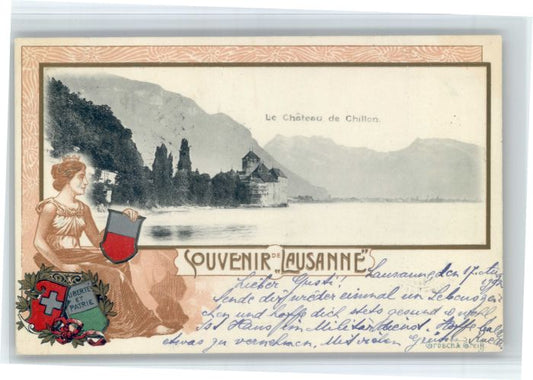 Le Château de Chillon.
SOUVENIR DE "LAUSANNE"
LIBERTÉ
ET
PATRIE
Lieber Gusti! Lausanne den 17.
Sende dir wieder einmal ein Lebens
chen und hoffe dich stets gesund &
Ist Hans im Militärdienst. Hoffe
etwas zu vernehmen. Mit vielen Grüssen